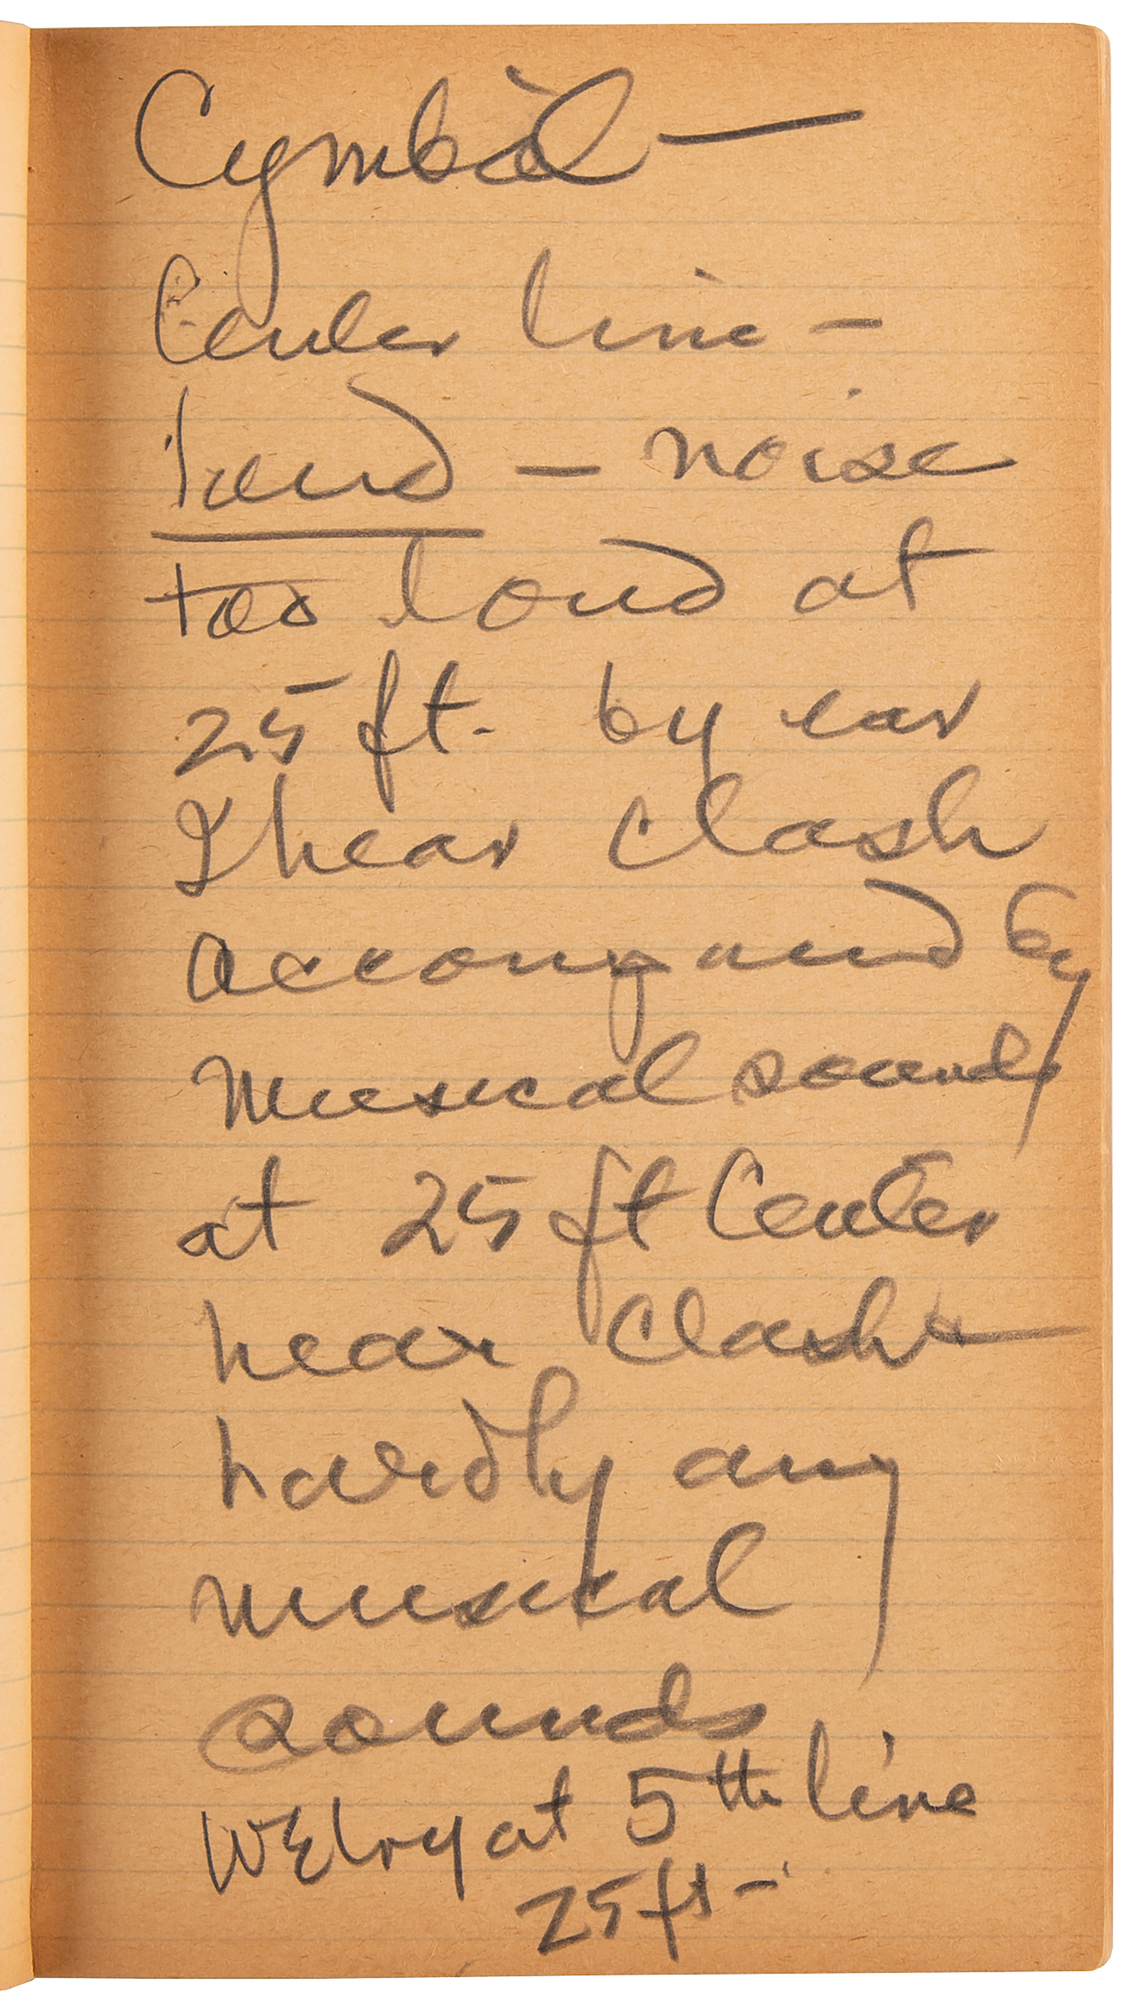 Cymbal —
Center line —
loud — noise
too loud at
25 ft. by ear
I hear clash
accompanied by
musical sounds
at 25 ft Center
hear clash &
hardly any
musical
sounds
We try at 5th line
25 ft —